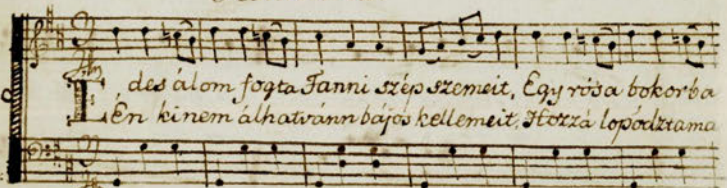 Édes álom fogta Fanni szép szemeit, Egy rósa bokorba
Én kinem álhatvánn bájos kellemeit, Hozzá lopództama